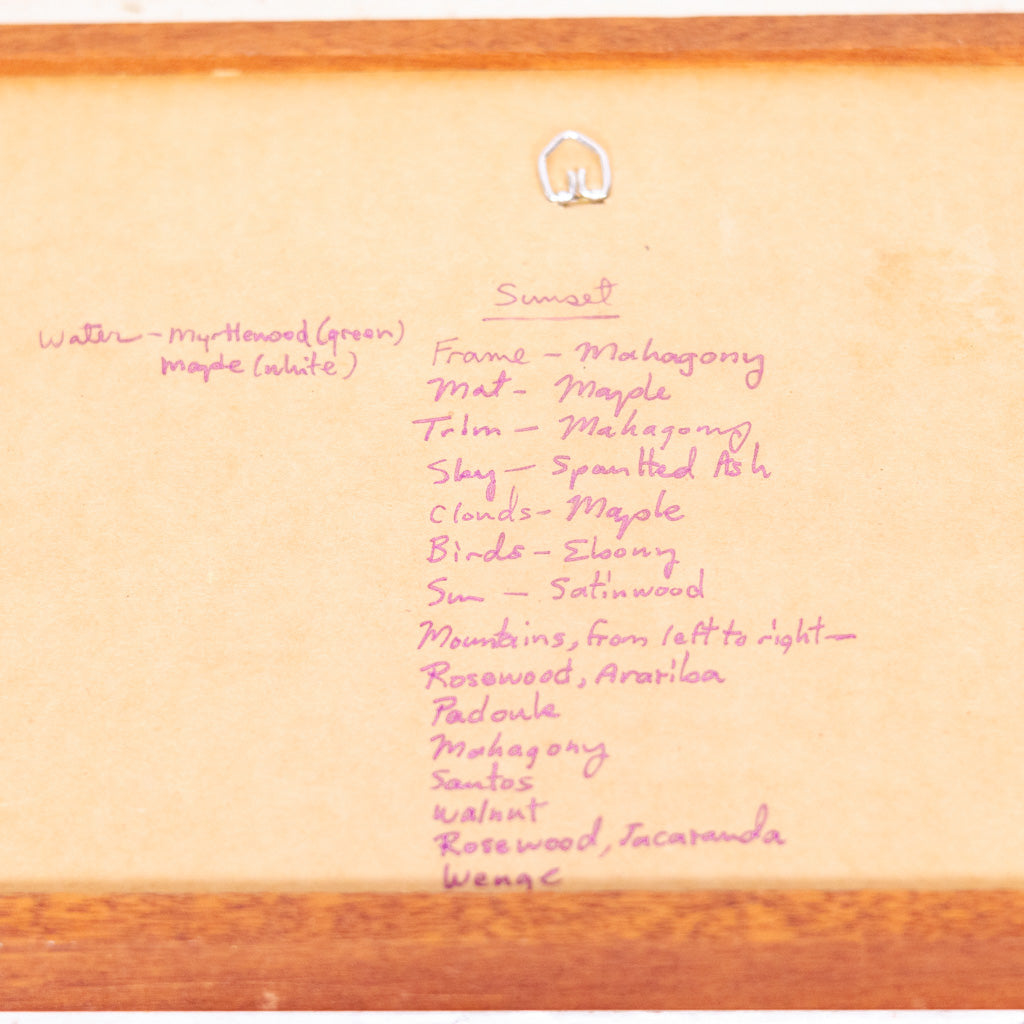 Sunset
Water - Myrtlewood (green)
Maple (white)
Frame - Mahagony
Mat - Maple
Trim - Mahagony
Sky - Spaultted Ash
Clouds - Maple
Birds - Ebony
Sun - Satinwood
Mountains, from left to right -
Rosewood, Arariba
Padouk
Mahagony
Santos
Walnut
Rosewood, Jacaranda
Wenge